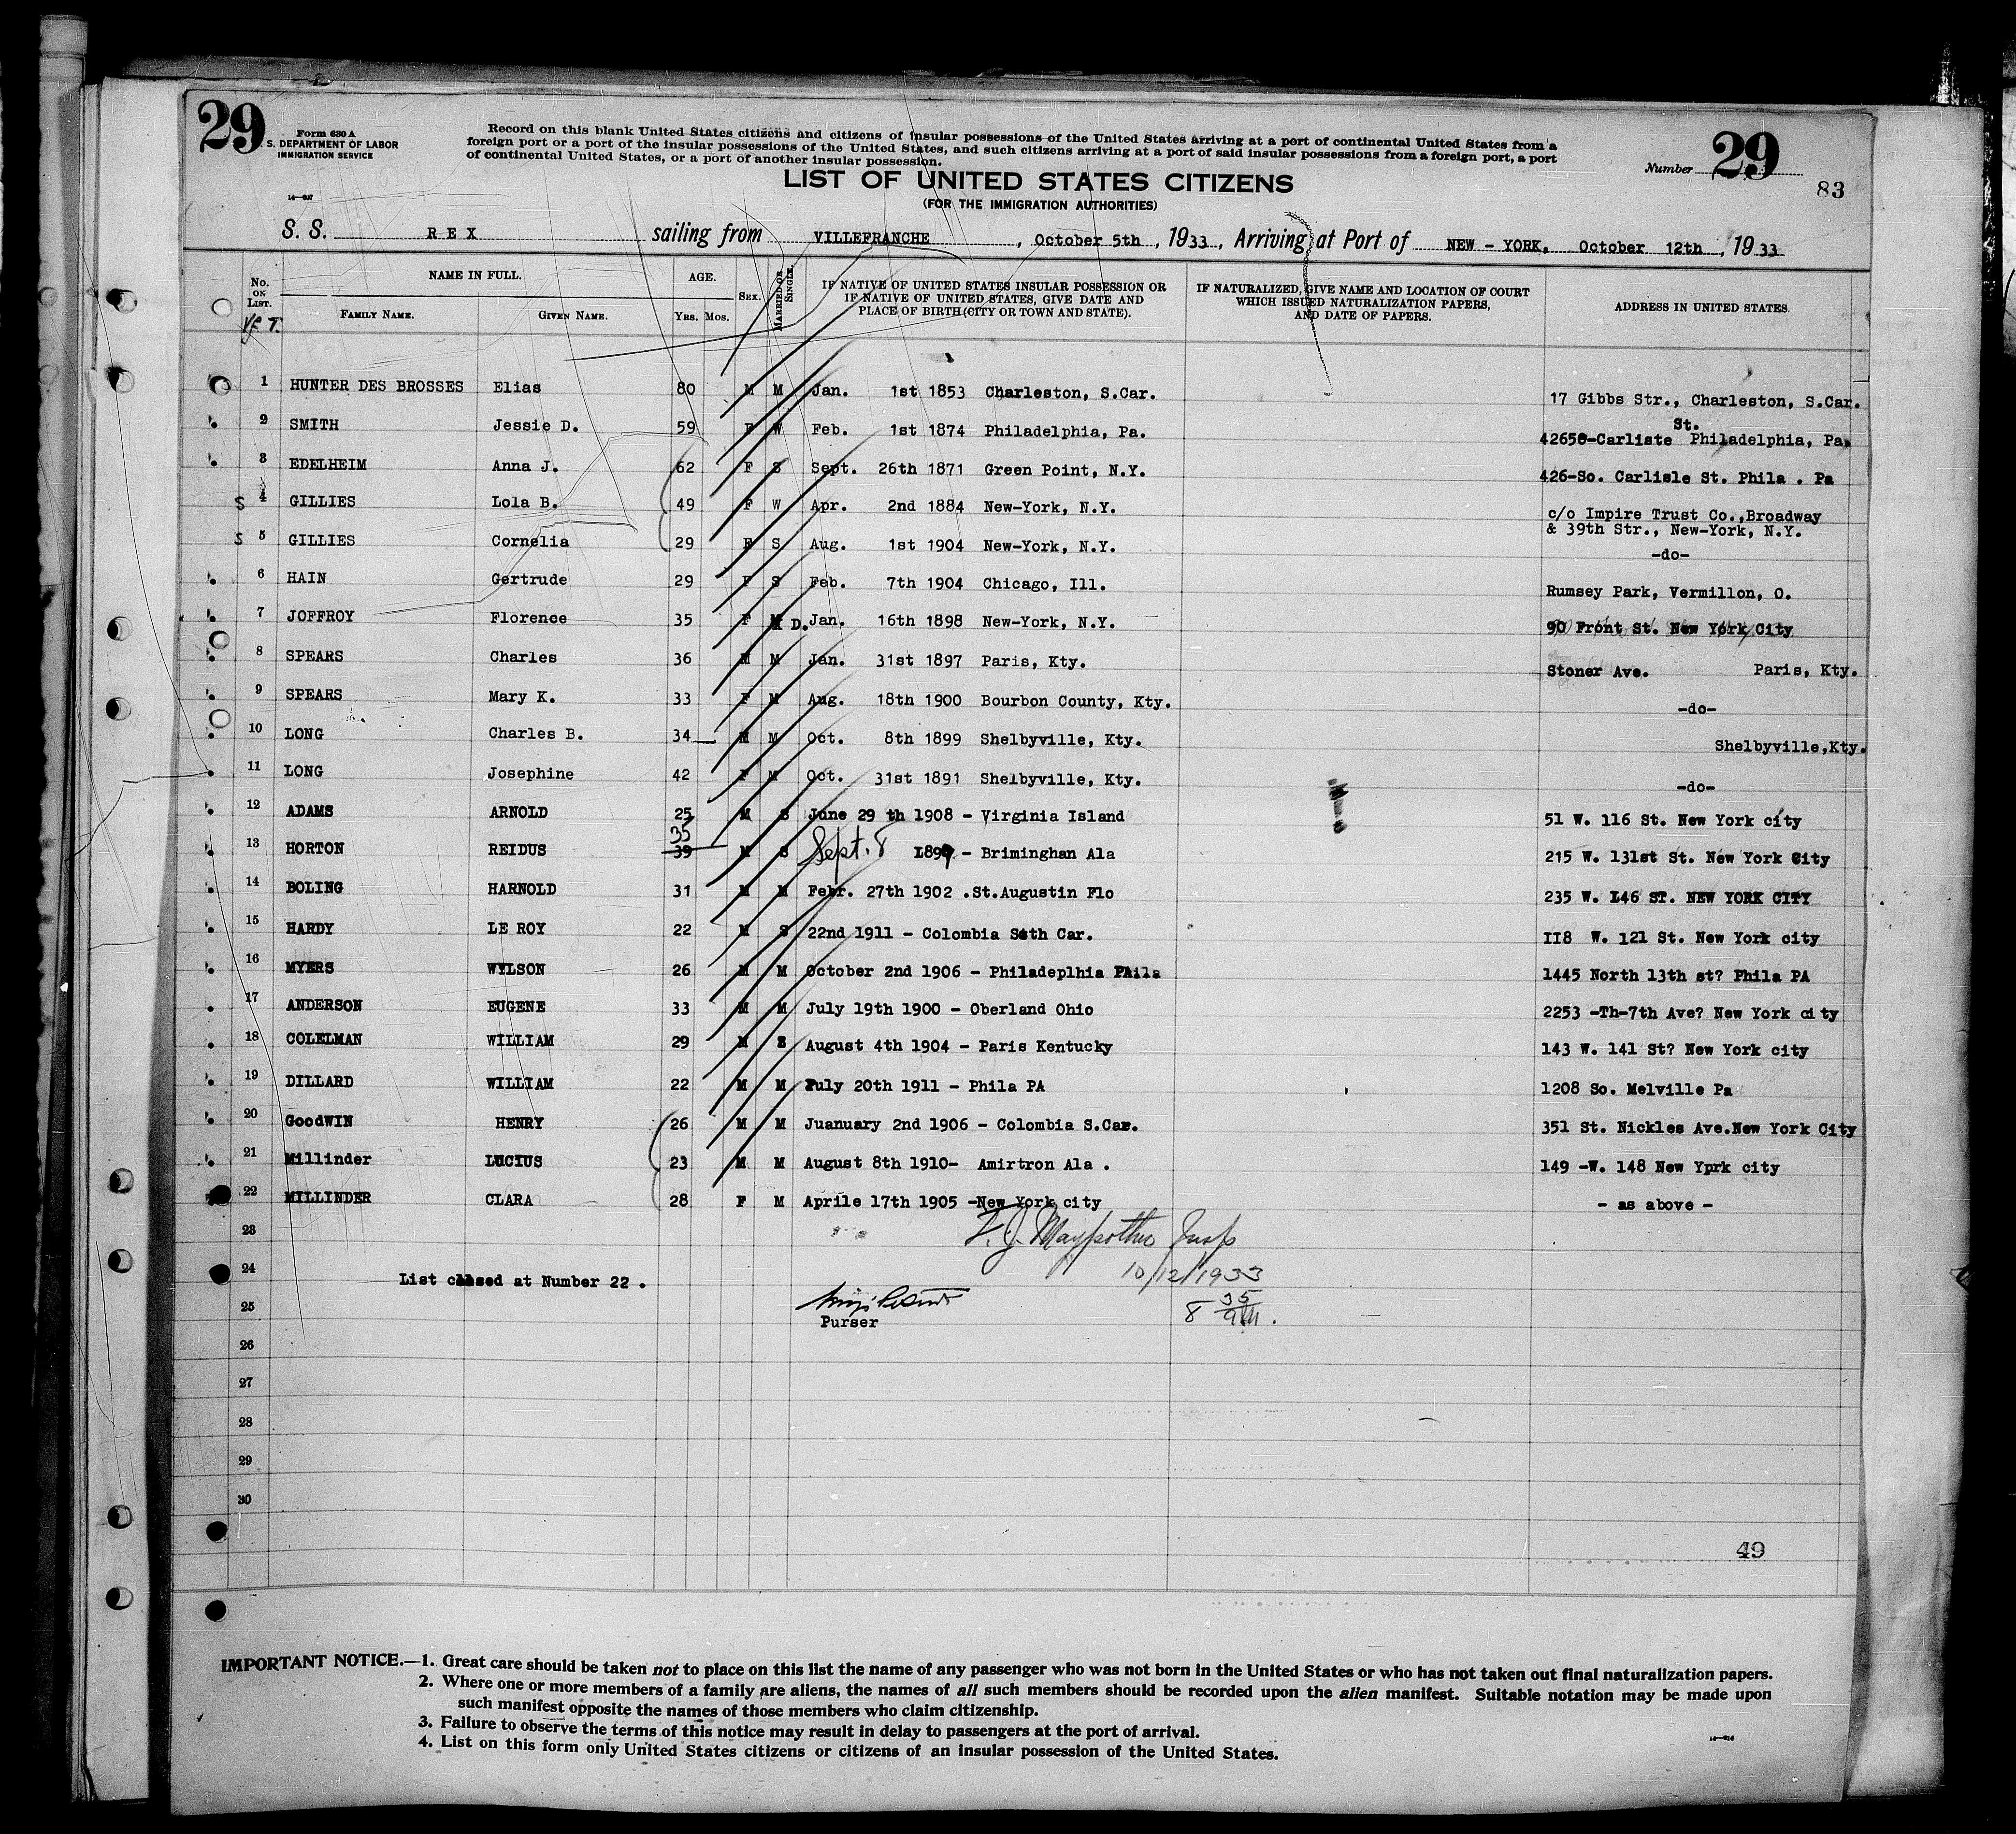 29
Form 630 A
S. DEPARTMENT OF LABOR
IMMIGRATION SERVICE
Record on this blank United States citizens and citizens of insular possessions of the United States arriving at a port of continental United States from a
foreign port or a port of the insular possessions of the United States, and such citizens arriving at a port of said insular possessions from a foreign port, a port
of continental United States, or a port of another insular possession.
Number 29
83
LIST OF UNITED STATES CITIZENS
(FOR THE IMMIGRATION AUTHORITIES)
S. S. REX sailing from VILLEFRANCHE, October 5th, 1933, Arriving at Port of NEW - YORK, October 12th, 1933
No. ON LIST. NAME IN FULL. AGE. SEX. MARRIED OR SINGLE. IF NATIVE OF UNITED STATES INSULAR POSSESSION OR IF NATIVE OF UNITED STATES, GIVE DATE AND PLACE OF BIRTH (CITY OR TOWN AND STATE). IF NATURALIZED, GIVE NAME AND LOCATION OF COURT WHICH ISSUED NATURALIZATION PAPERS, AND DATE OF PAPERS. ADDRESS IN UNITED STATES.
FAMILY NAME. GIVEN NAME. YRS. MOS.
1 HUNTER DES BROSSES Elias 80 M M Jan. 1st 1853 Charleston, S.Car. 17 Gibbs Str., Charleston, S.Car.
2 SMITH Jessie D. 59 F W Feb. 1st 1874 Philadelphia, Pa. 42650-Carliste St. Philadelphia, Pa
3 EDELHEIM Anna J. 62 F S Sept. 26th 1871 Green Point, N.Y. 426-So. Carlisle St. Phila . Pa
S 4 GILLIES Lola B. 49 F W Apr. 2nd 1884 New-York, N.Y. c/o Impire Trust Co.,Broadway
& 39th Str., New-York, N.Y.
S 5 GILLIES Cornelia 29 F S Aug. 1st 1904 New-York, N.Y. -do-
6 HAIN Gertrude 29 F S Feb. 7th 1904 Chicago, Ill. Rumsey Park, Vermillon, O.
7 JOFFROY Florence 35 F M D. Jan. 16th 1898 New-York, N.Y. 90 Front St. New York City
8 SPEARS Charles 36 M M Jan. 31st 1897 Paris, Kty. Stoner Ave. Paris, Kty.
9 SPEARS Mary K. 33 F M Aug. 18th 1900 Bourbon County, Kty. -do-
10 LONG Charles B. 34 M M Oct. 8th 1899 Shelbyville, Kty. Shelbyville,Kty.
11 LONG Josephine 42 F M Oct. 31st 1891 Shelbyville, Kty. -do-
12 ADAMS ARNOLD 25 M S June 29 th 1908 - Virginia Island 51 W. 116 St. New York city
13 HORTON REIDUS 39 35 M S Sept. 8 1899 - Briminghan Ala 215 W. 131st St. New York City
14 BOLING HARNOLD 31 M M Febr. 27th 1902 .St.Augustin Flo 235 W. L46 ST. NEW YORK CITY
15 HARDY LE ROY 22 M S 22nd 1911 - Colombia Soth Car. II8 W. 121 St. New York city
16 MYERS WYLSON 26 M M October 2nd 1906 - Philadeplhia Phila 1445 North 13th st? Phila PA
17 ANDERSON EUGENE 33 M M July 19th 1900 - Oberland Ohio 2253 -Th-7th Ave? New York city
18 COLELMAN WILLIAM 29 M S August 4th 1904 - Paris Kentucky 143 W. 141 St? New York city
19 DILLARD WILLIAM 22 M M July 20th 1911 - Phila PA 1208 So. Melville Pa
20 GoodWIN HENRY 26 M M Juanuary 2nd 1906 - Colombia S.Car. 351 St. Nickles Ave.New York City
21 Millinder LUCIUS 23 M M August 8th 1910- Amirtron Ala . 149 -W. 148 New Yprk city
22 MILLINDER CLARA 28 F M Aprile 17th 1905 -New York city - as above -
23
24
10/12/1933
List closed at Number 22 .
25
8 35 am.
Purser
26
27
28
29
30
49
IMPORTANT NOTICE.—1. Great care should be taken not to place on this list the name of any passenger who was not born in the United States or who has not taken out final naturalization papers.
2. Where one or more members of a family are aliens, the names of all such members should be recorded upon the alien manifest. Suitable notation may be made upon
such manifest opposite the names of those members who claim citizenship.
3. Failure to observe the terms of this notice may result in delay to passengers at the port of arrival.
4. List on this form only United States citizens or citizens of an insular possession of the United States.